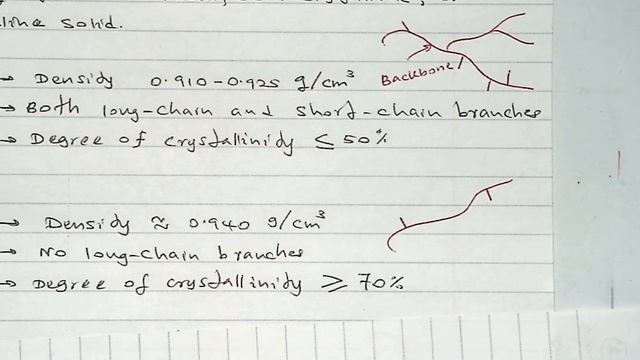 line solid.
→ Density 0.910-0.925 g/cm³
Backbone
→ Both long-chain and short-chain branches
→ Degree of crystallinity ≤ 50%
→ Density ≈ 0.940 g/cm³
→ No long-chain branches
→ Degree of crystallinity ≥ 70%